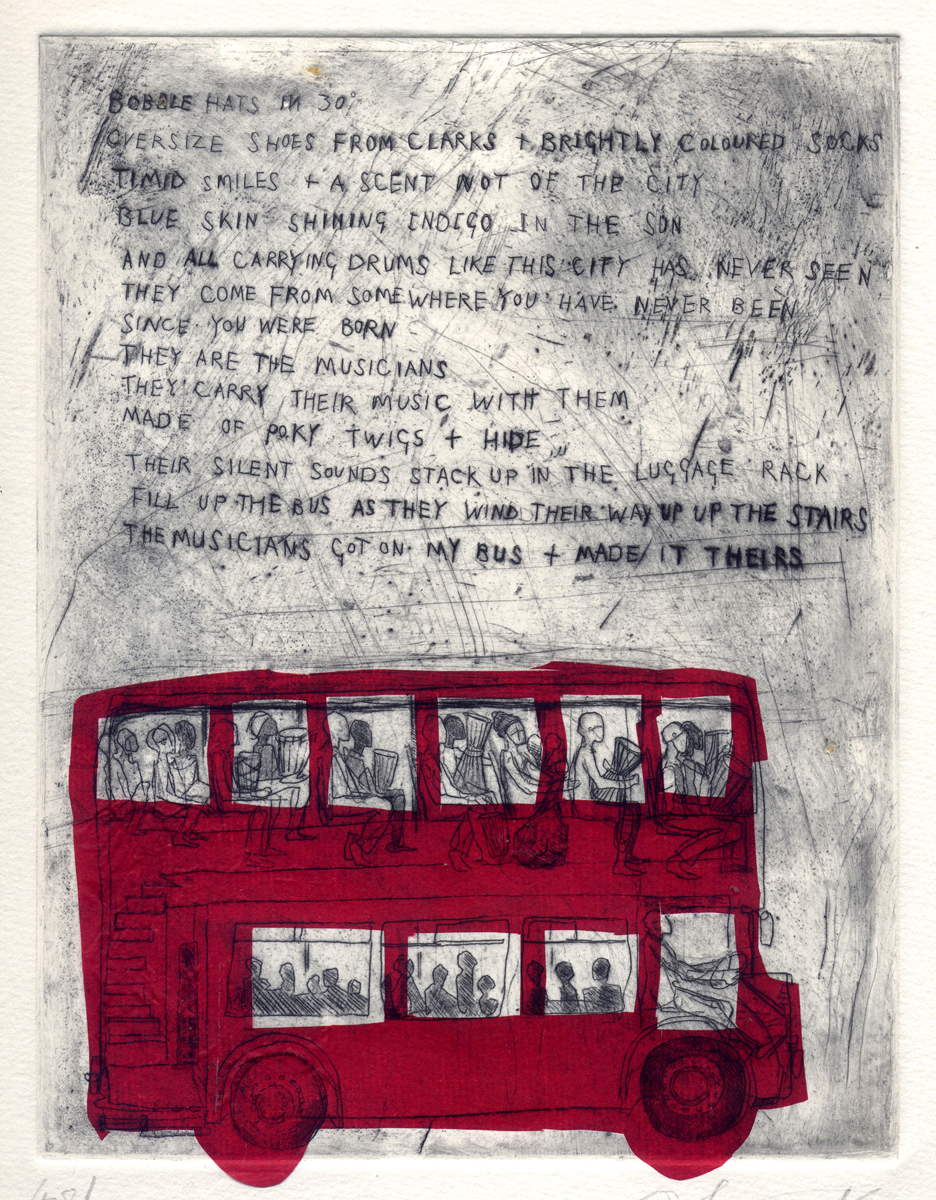 BOBBLE HATS IN 30°
OVERSIZE SHOES FROM CLARKS + BRIGHTLY COLOURED SOCKS
TIMID SMILES + A SCENT NOT OF THE CITY
BLUE SKIN SHINING INDIGO IN THE SUN
AND ALL CARRYING DRUMS LIKE THIS CITY HAS NEVER SEEN
THEY COME FROM SOMEWHERE YOU HAVE NEVER BEEN
SINCE YOU WERE BORN
THEY ARE THE MUSICIANS
THEY CARRY THEIR MUSIC WITH THEM
MADE OF POKY TWIGS + HIDE
THEIR SILENT SOUNDS STACK UP IN THE LUGGAGE RACK
FILL UP THE BUS AS THEY WIND THEIR WAY UP UP THE STAIRS
THE MUSICIANS GOT ON MY BUS + MADE IT THEIRS